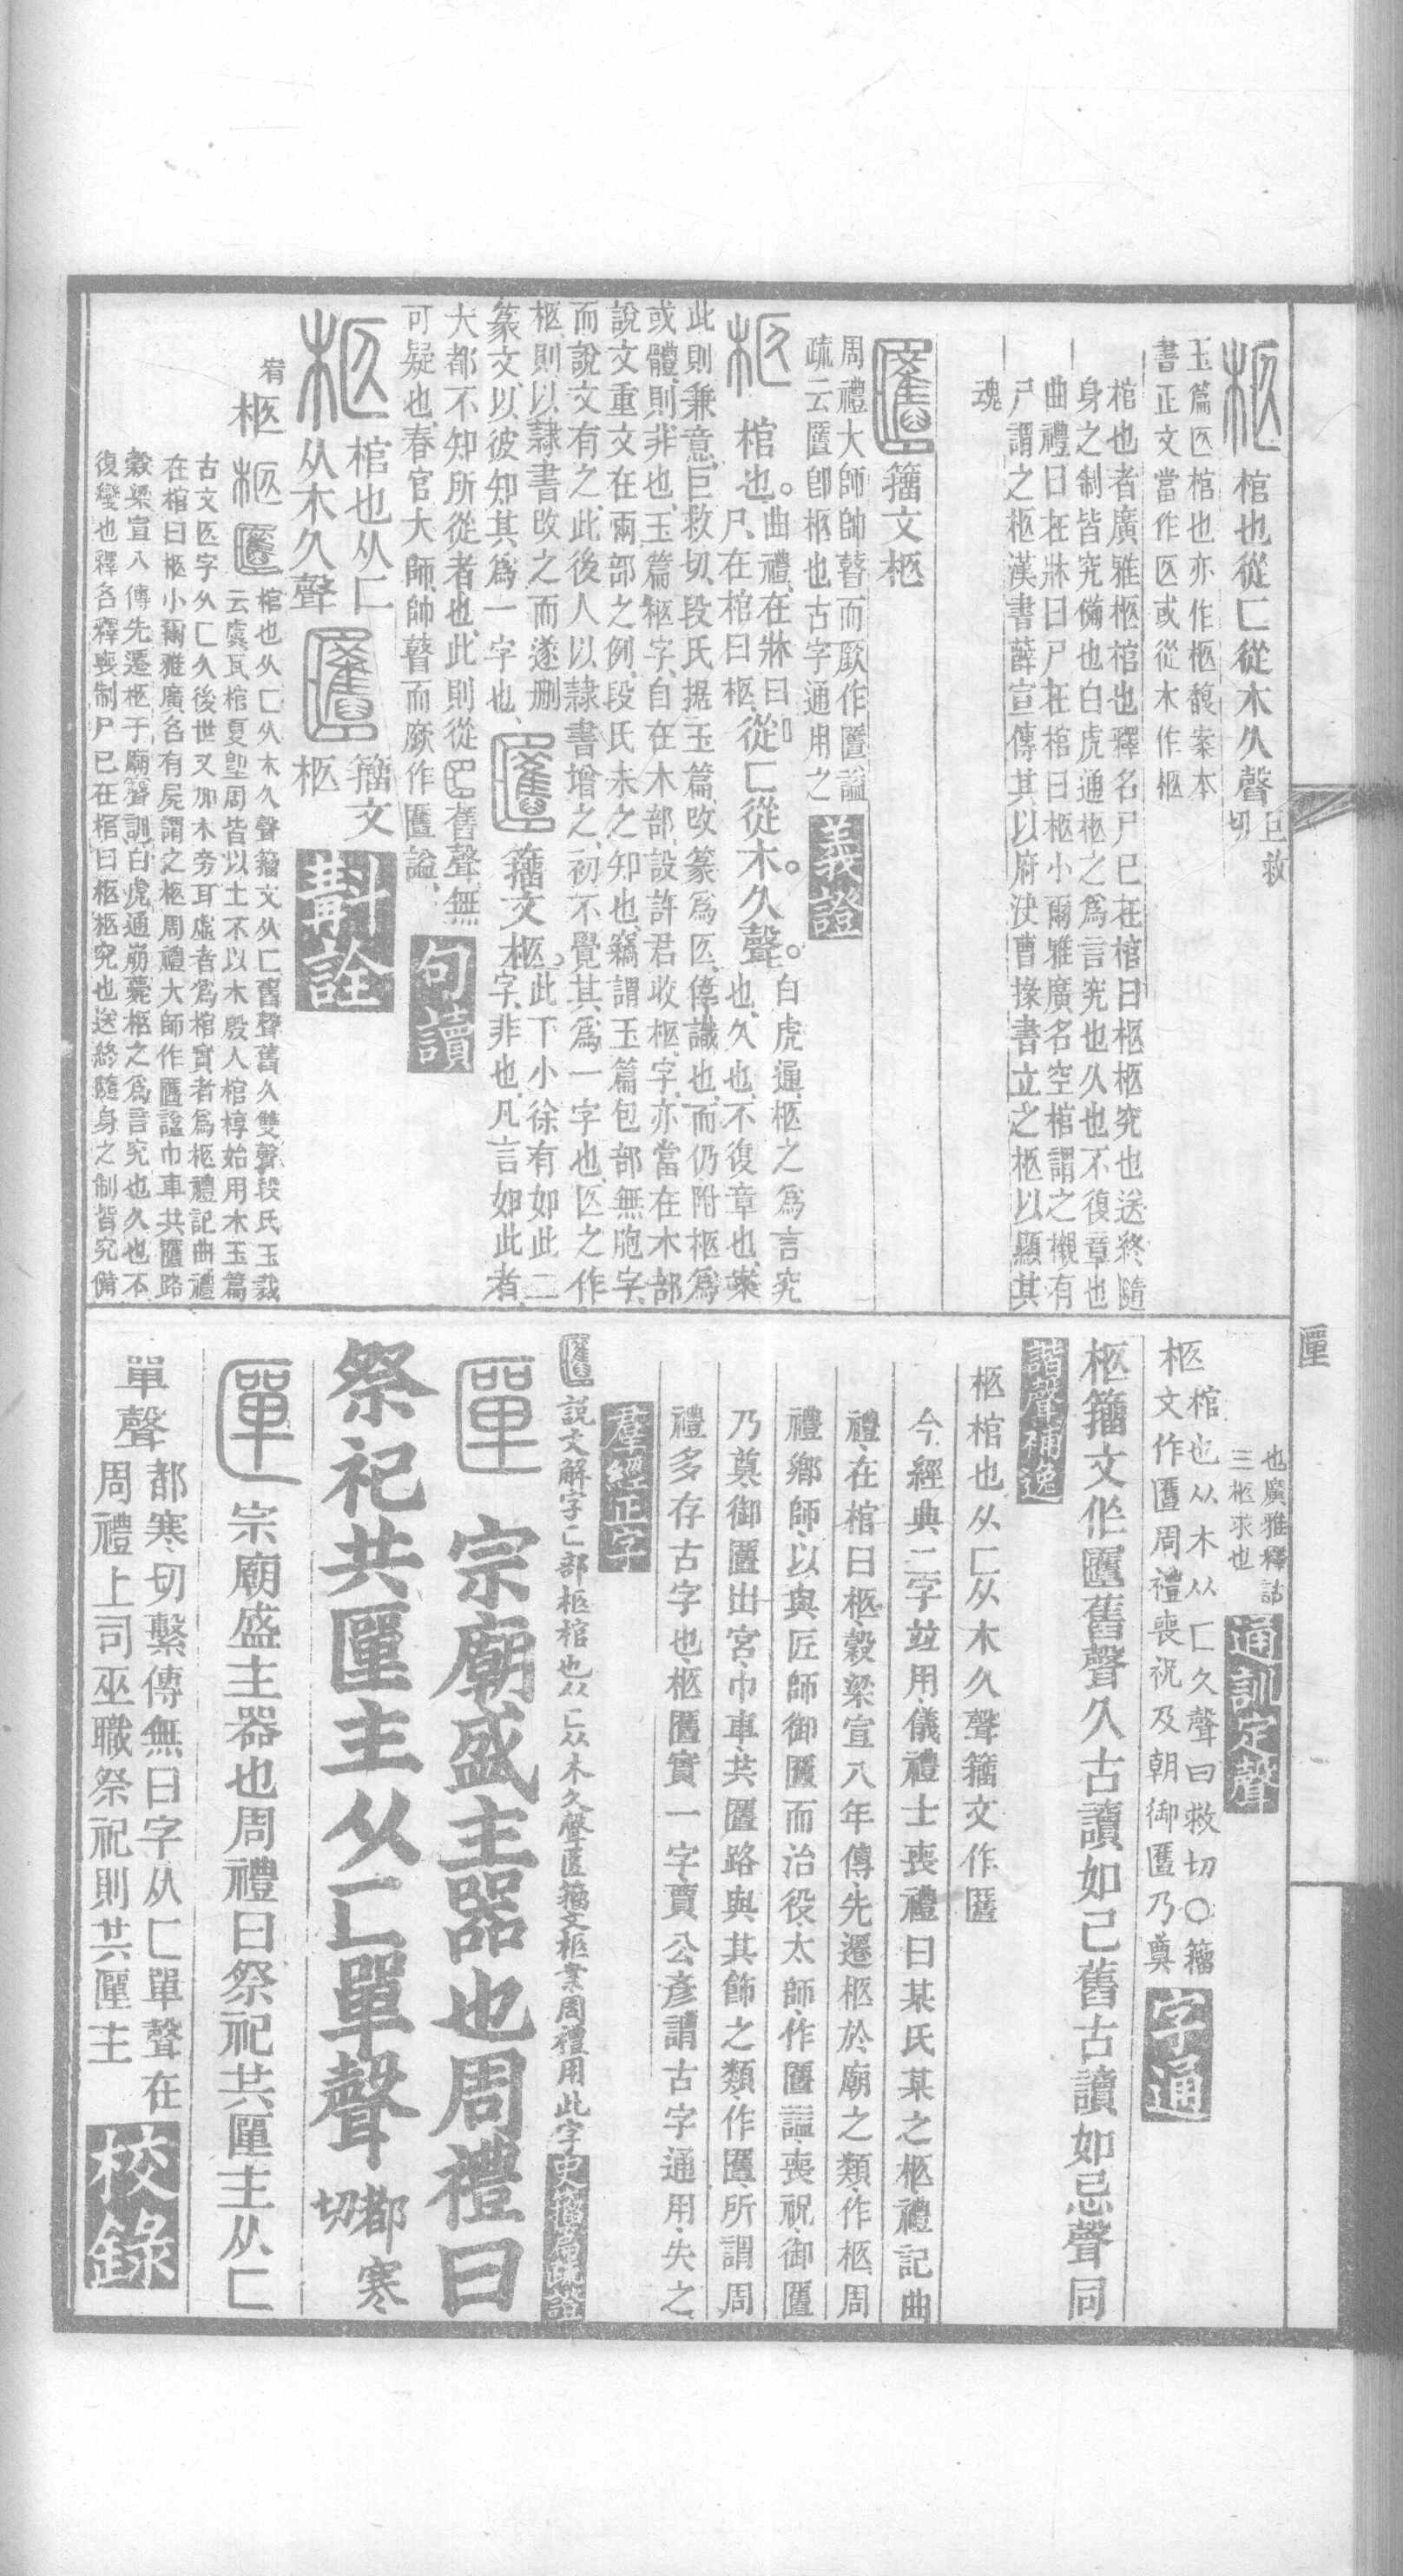 柩 棺也從匚從木久聲 巨救切
玉篇匛棺也亦作柩馥案本
書正文當作匛或從木作柩
棺也者廣雅柩棺也釋名尸已在棺曰柩柩究也送終隨
身之制皆究備也白虎通柩之爲言究也久也不復章也
曲禮曰在牀曰尸在棺曰柩小爾雅廣名空棺謂之櫬有
尸謂之柩漢書薛宣傳其以府決曹掾書立之柩以顯其
魂
匶 籀文柩
周禮大師帥瞽而廞作匶謚
疏云匶卽柩也古字通用之 義證
柩 棺也。曲禮、在牀曰尸、在棺曰柩、從匚從木。久聲。白虎通、柩之爲言究也、久也、不復章也、案
此則兼意、巨救切、段氏据玉篇、改篆爲匛、偉識也、而仍附柩爲
或體、則非也、玉篇柩字、自在木部、設許君收柩字、亦當在木部
說文重文在兩部之例、段氏未之知也、竊謂玉篇包部無胞字、
而說文有之、此後人以隸書增之、初不覺其爲一字也、匛之作
柩、則以隸書改之、而遂删
篆文、以彼知其爲一字也、 匶 籀文柩。此下小徐有如此二字、非也、凡言如此者、
大都不知所從者也、此則從匚舊聲、無
可疑也、春官大師、帥瞽而廞作匶謚、 句讀
柩 棺也从匚从木久聲 匶 籀文柩 斠詮
宥 柩 柩 匶 棺也从匚从木久聲籀文从匚舊聲舊久雙聲段氏玉裁
云虞瓦棺夏堲周皆以土不以木殷人棺椁始用木玉篇
古文匛字从匚久後世又加木旁耳虛者爲棺實者爲柩禮記曲禮
在棺曰柩小爾雅廣名有屍謂之柩周禮大師作匶謚巾車共匶路
穀梁宣八傳先遷柩于廟聲訓白虎通崩薨柩之爲言究也久也不
復變也釋名釋喪制尸已在棺曰柩柩究也送終隨身之制皆究備
也廣雅釋詁
三柩求也 通訓定聲
柩 棺也从木从匚久聲曰救切○籀
文作匶周禮喪祝及朝御匶乃奠 字通
柩籀文作匶舊聲久古讀如己舊古讀如忌聲同
諧聲補逸
柩棺也从匚从木久聲籀文作匶
今經典二字竝用儀禮士喪禮曰某氏某之柩禮記曲
禮在棺曰柩穀梁宣八年傳先遷柩於廟之類作柩周
禮鄉師以與匠師御匶而治役太師作匶謚喪祝御匶
乃奠御匶出宮巾車共匶路與其飾之類作匶所謂周
禮多存古字也柩匶實一字賈公彥謂古字通用失之
羣經正字
匶 説文解字匚部柩棺也从匚从木久聲匶籀文柩案周禮用此字 史籀篇疏證
匰 宗廟盛主器也周禮曰
祭祀共匰主从匚單聲 都寒切
匰 宗廟盛主器也周禮曰祭祀共匰主从匚
單聲 都寒切繫傳無曰字从匚單聲在
周禮上司巫職祭祀則共匰主 校錄
匰